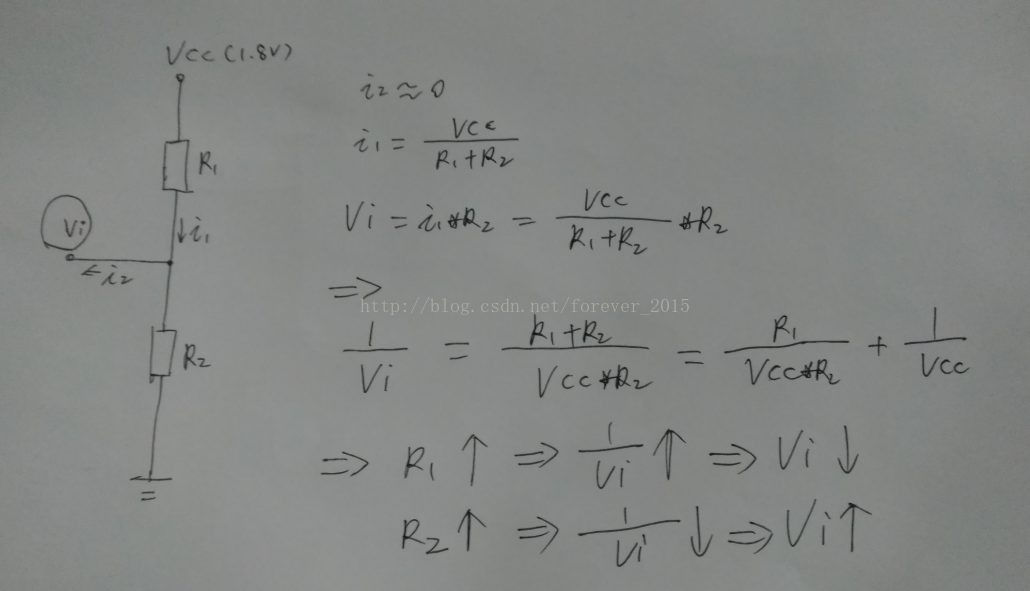 Vcc (1.8V)
R1
Vi
↓i1
←i2
R2
i2≈0
i1 = Vcc / (R1+R2)
Vi = i1*R2 = Vcc / (R1+R2) *R2
=>
http://blog.csdn.net/forever_2015
1/Vi = (R1+R2) / (Vcc*R2) = R1 / (Vcc*R2) + 1/Vcc
=> R1↑ => 1/Vi ↑ => Vi↓
R2↑ => 1/Vi ↓ => Vi↑